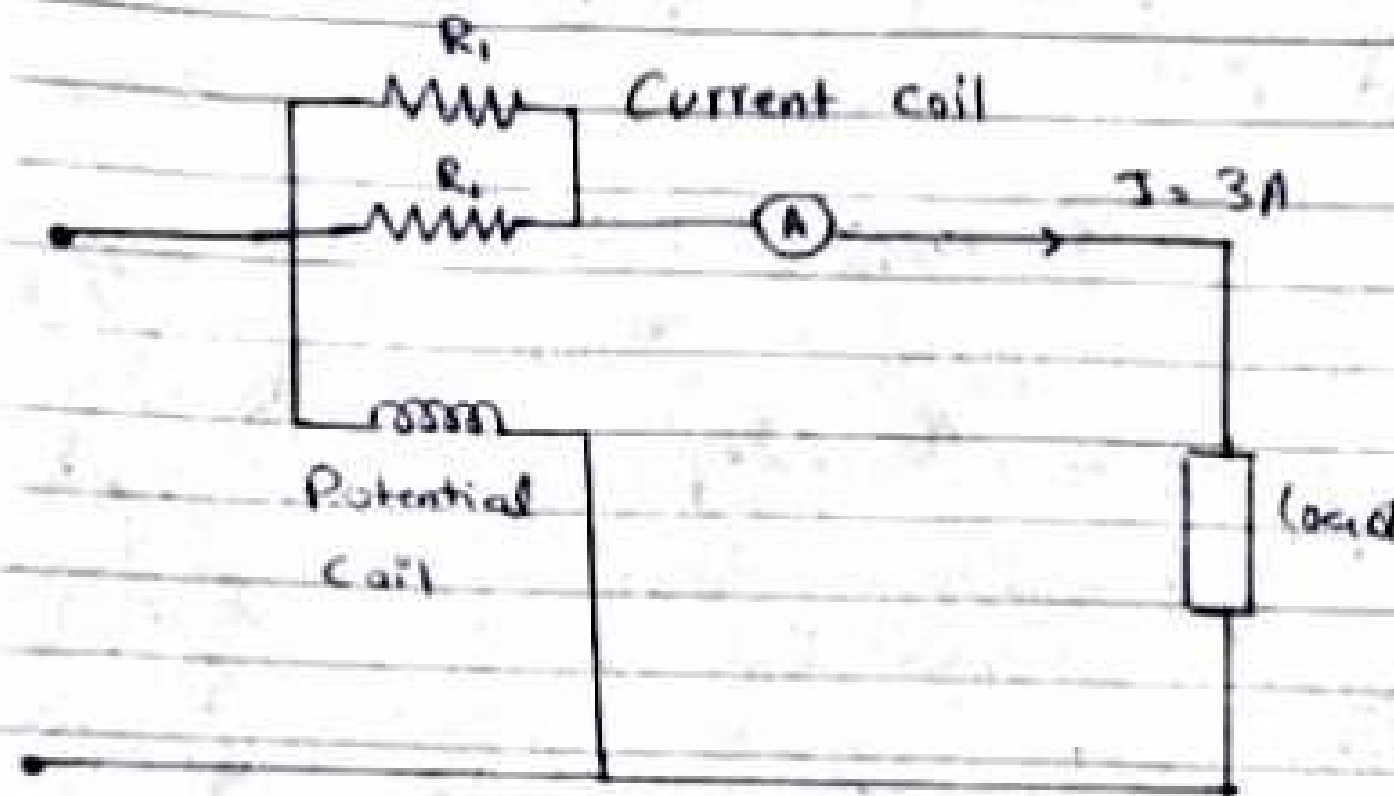 R₁
Current coil
R₁
A
I = 3A
Potential
Coil
Load